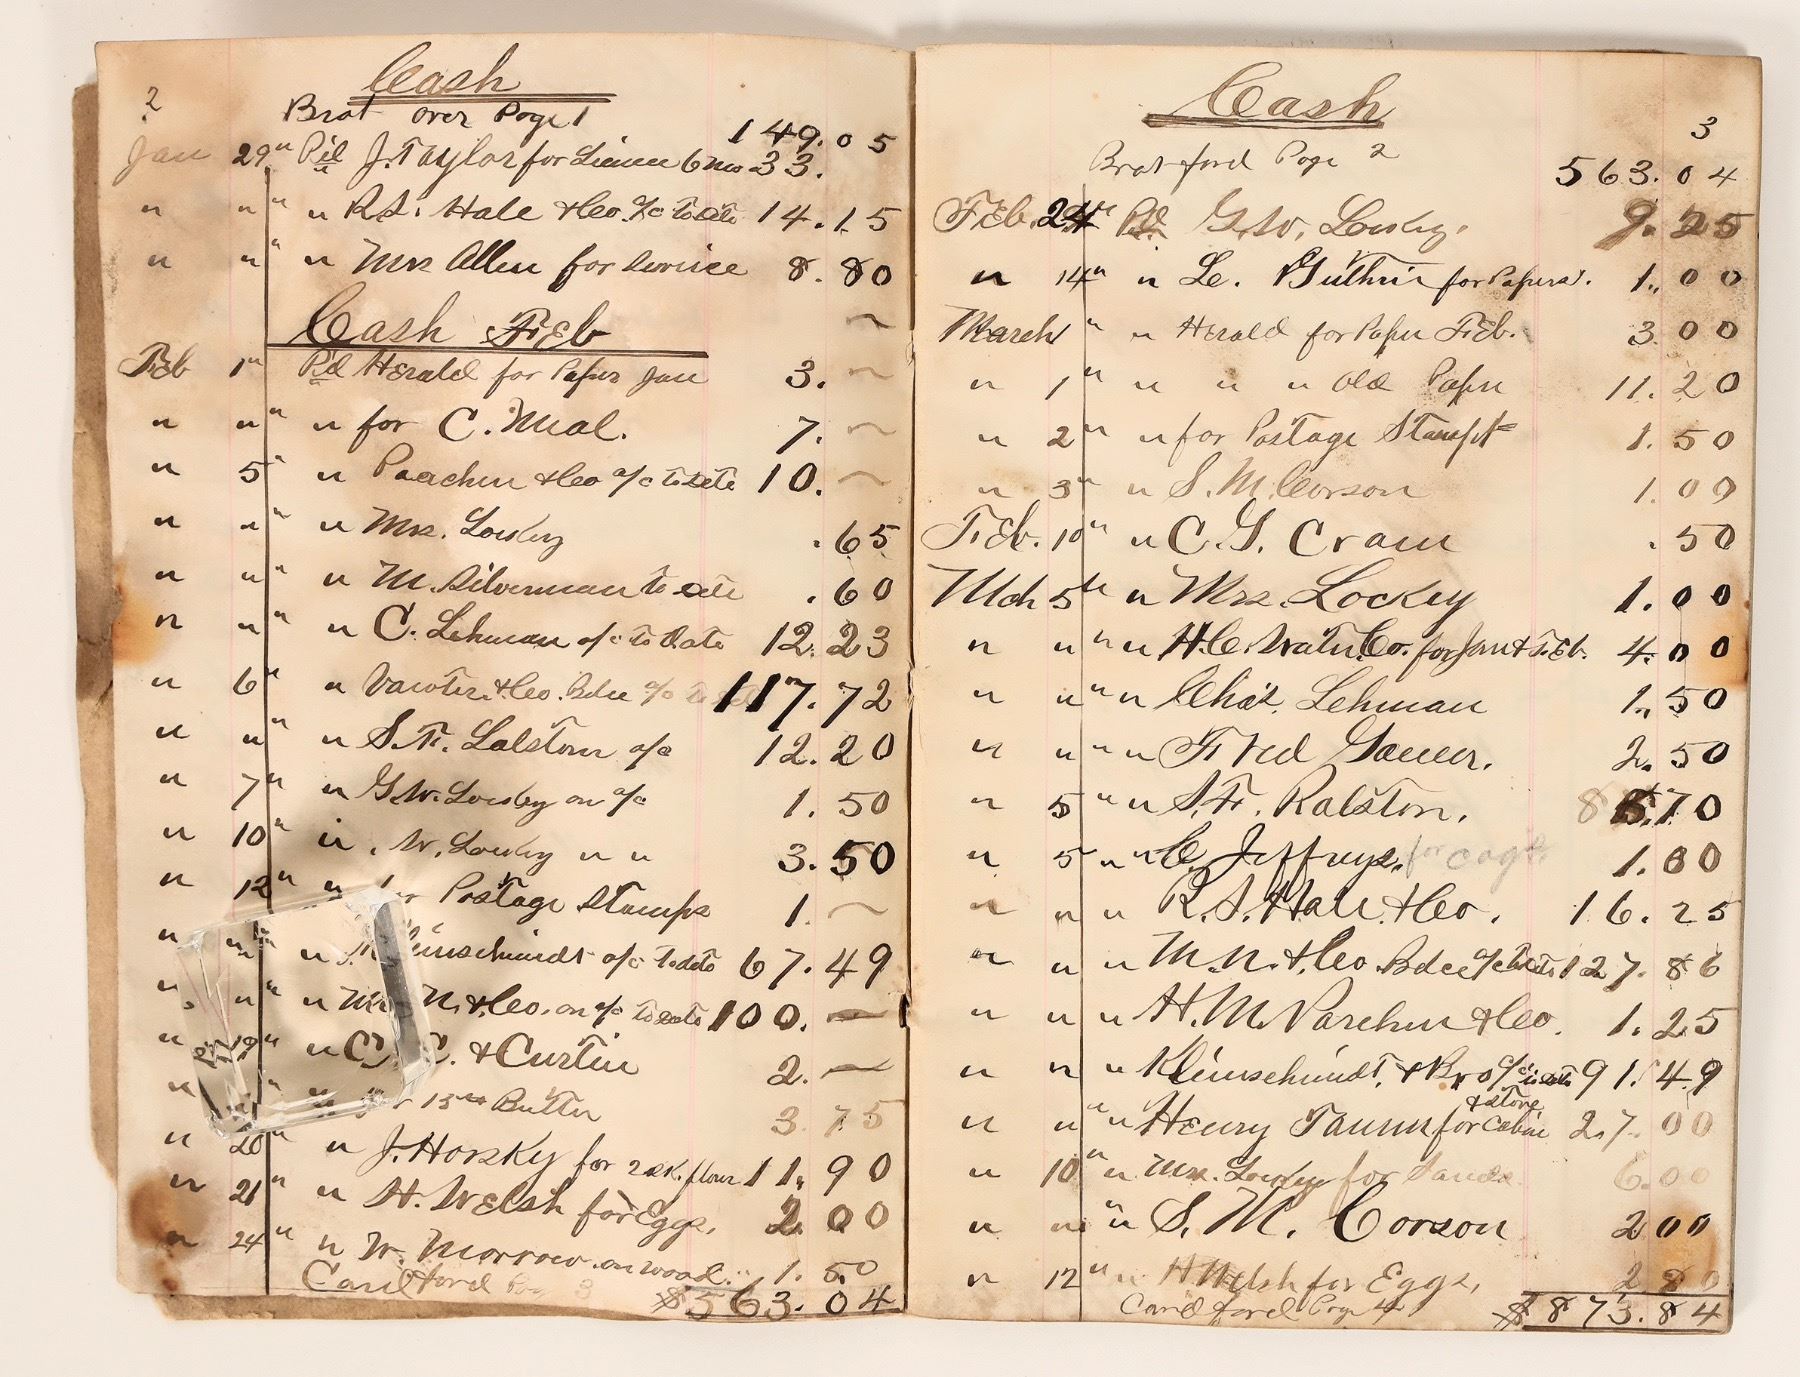 2
Cash
Brot over Page 1 149.05
Jan 29" Pd J. Taylor for 6 mo 33.
" " " " R.S. Hale & Co. a/c to date 14.15
" " " " Mrs Allen for Service 8.80
Cash Feb ~
Feb 1" Pd Herald for Paper Jan 3. ~
" " " " for C. Meal. 7. ~
" 5" " Parchen & Co a/c to date 10. ~
" " " " Mrs. Lockey .65
" " " " M. Silverman to date .60
" " " " C. Lehman a/c to Date 12.23
" 6" " & Co. Bdee a/c to 117.72
" " " " S.F. Ralston a/c 12.20
" 7" " G.W. Lockey on a/c 1.50
" 10" " . W. Lockey " " 3.50
" 12" " Postage Stamps 1. ~
" " " " a/c to date 67.49
" " " " N. & Co. on a/c to date 100. —
" 19" " C. & Curtin 2. —
" " " 15 Butter 3.75
" 20" " J. Horsky for 2 sk. flour 11.90
" 21" " H. Welsh for Eggs. 2.00
" 24" " W. Morrow on wood " 1.50
Card ford Page 3 $563.04
Cash
3
Brot ford Page 2 563.04
Feb. 24" Pd. G.W. Lockey. 9.25
" 14" " Le. Guthrie for Papers. 1.00
March " " Herald for Paper Feb. 3.00
" 1" " " " Old Paper 11.20
" 2" " for Postage Stamps 1.50
" 3" " S.M. Corson 1.00
Feb. 10" " C.G. Cram .50
Mch 5th " Mrs. Lockey 1.00
" " " " H.C. Water Co. for Jan & Feb. 4.00
" " " " Chas. Lehman 1.50
" " " " Fred 2.50
" 5" " S.F. Ralston. 70
" 5 " " C. Jeffreys. for 1.00
" " " R.S. Hale & Co. 16.25
" " " M.N. & Co. Bdee a/c to date 127.86
" " " H.M. Parchen & Co. 1.25
" " " Kleinschmidt. & Bro a/c to date 91.49
& store
" " " " Henry for Cabin 27.00
" 10" " Mrs. Lockey for 6.00
" " " " S.M. Corson 2 00
" 12" " H Welsh for Eggs, 2 80
Card ford Page 4 $873.84